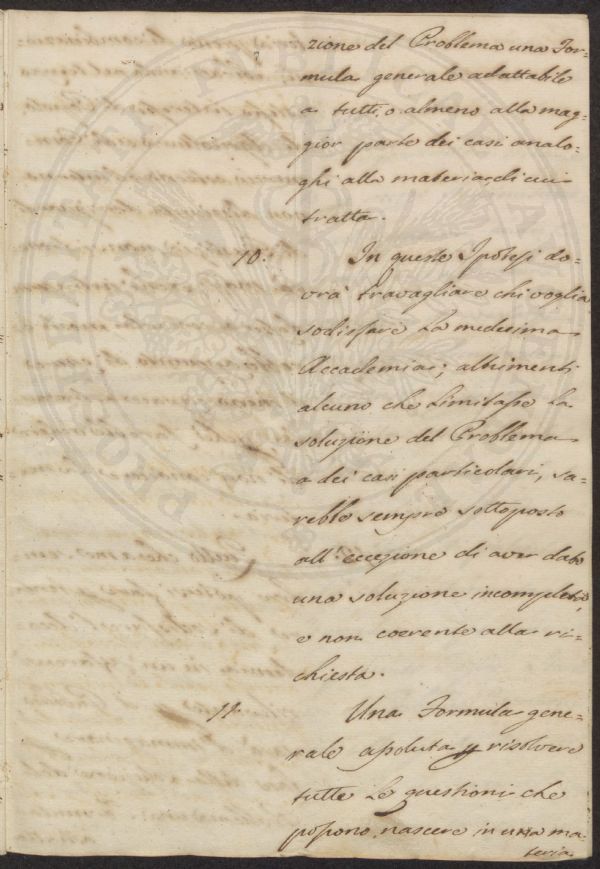 zione del Problema una For=
mula generale adattabile
a tutti, o almeno alla mag=
gior parte dei casi analo=
ghi alla materia, di cui
tratta.
10. In questo Ipotesi do=
vrà travagliare chi voglia
sodisfare la medesima
Accademia; altrimenti
alcuno che limitasse la
soluzione del Problema
a dei casi particolari, sa=
rebbe sempre sottoposto
all'eccezione di aver dato
una soluzione incompleta,
e non coerente alla ri=
chiesta.
11. Una Formula gene=
rale assoluta p risolvere
tutte le questioni che
possono nascere in una ma=
teria